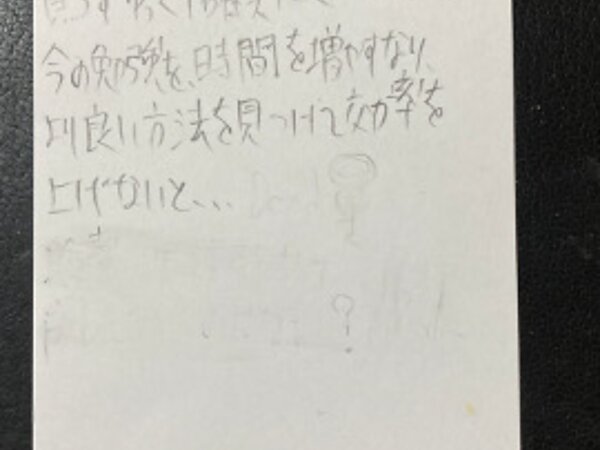 今の勉強を、時間を増やすなり、
より良い方法を見つけて効率を
上げないと、、、
?